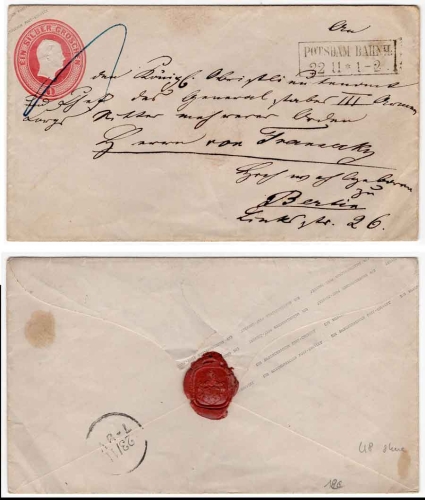 EIN SILBER GROSCHEN
An
POTSDAM BAHNH.
22 11 * 1-2
den Königl. Obristlieutenant
und Chef des Generalstabes III Armee
Corps Ritter mehrerer Orden
Herrn von Fransecky
Hochwohlgeboren
zu
Berlin
Links str. 26.
23/11